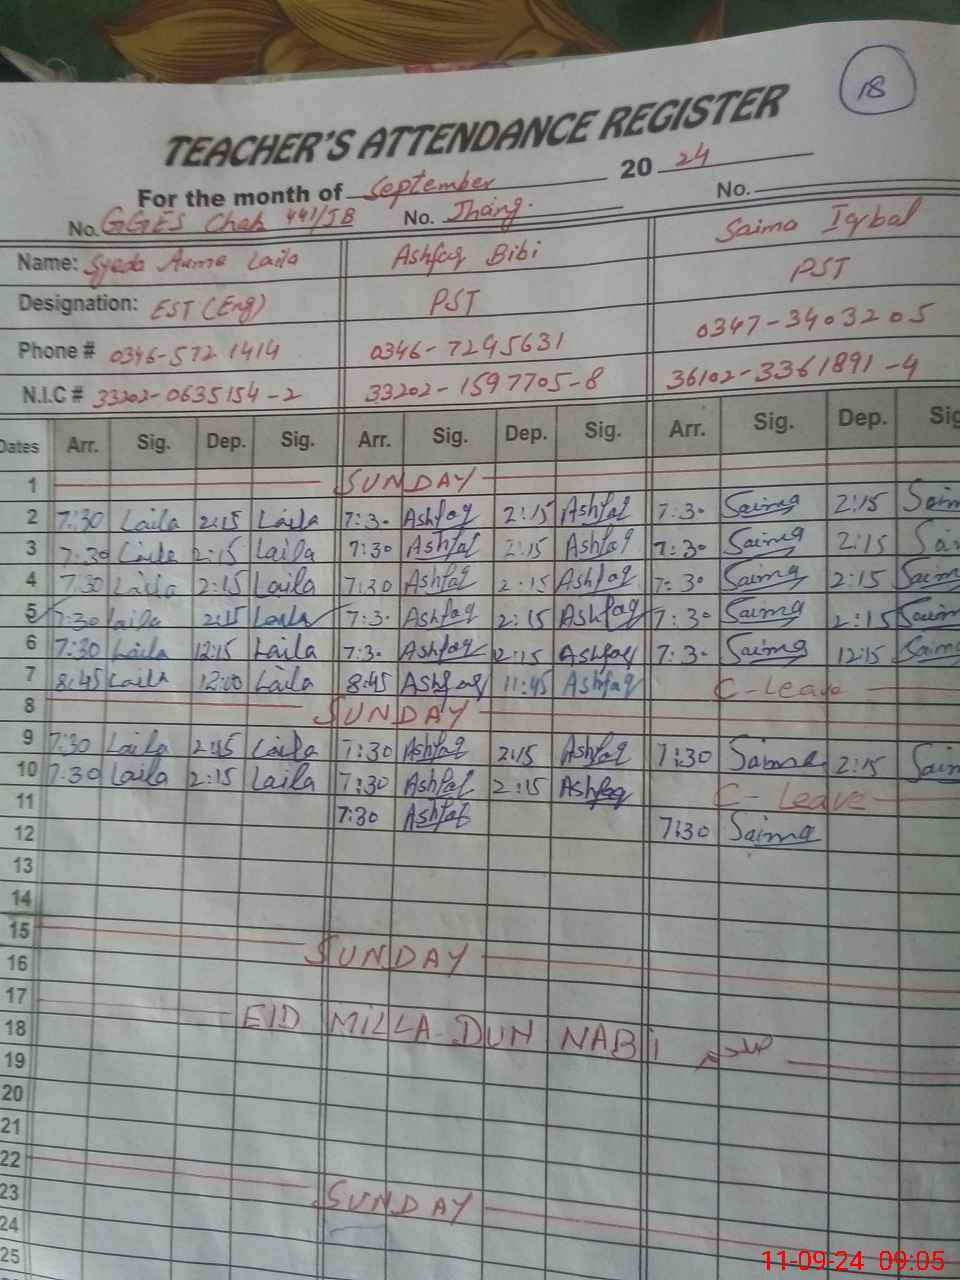 18
TEACHER'S ATTENDANCE REGISTER
For the month of September 20 24
No. GGES Chak 441/JB No. Jhang. No.
Name: Syeda Asma Laila Ashfaq Bibi Saima Iqbal
Designation: EST (Eng) PST PST
Phone # 0346-572 1414 0346-7295631 0347-3403205
N.I.C # 33202-0635154-2 33202-1597705-8 36102-3361891-4
Dates Arr. Sig. Dep. Sig. Arr. Sig. Dep. Sig. Arr. Sig. Dep. Sig
1 SUNDAY
2 7:30 Laila 2:15 Laila 7:30 Ashfaq 2:15 Ashfaq 7:30 Saima 2:15 Saim
3 7:30 Laila 2:15 Laila 7:30 Ashfaq 2:15 Ashfaq 7:30 Saima 2:15 Sai
4 7:30 Laila 2:15 Laila 7:30 Ashfaq 2:15 Ashfaq 7:30 Saima 2:15 Saim
5 7:30 Laila 2:15 Laila 7:30 Ashfaq 2:15 Ashfaq 7:30 Saima 2:15 Saim
6 7:30 Laila 12:15 Laila 7:30 Ashfaq 12:15 Ashfaq 7:30 Saima 12:15 Saima
7 8:45 Laila 12:00 Laila 8:45 Ashfaq 11:45 Ashfaq C-Leave
8 SUNDAY
9 7:30 Laila 2:15 Laila 7:30 Ashfaq 2:15 Ashfaq 7:30 Saima 2:15 Saim
10 7:30 Laila 2:15 Laila 7:30 Ashfaq 2:15 Ashfaq C-Leave
11 7:30 Ashfaq 7:30 Saima
12
13
14
15 SUNDAY
16
17 EID MILLA-DUN NABI صلعم
18
19
20
21
22 SUNDAY
23
24
25
11-09-24 09:05